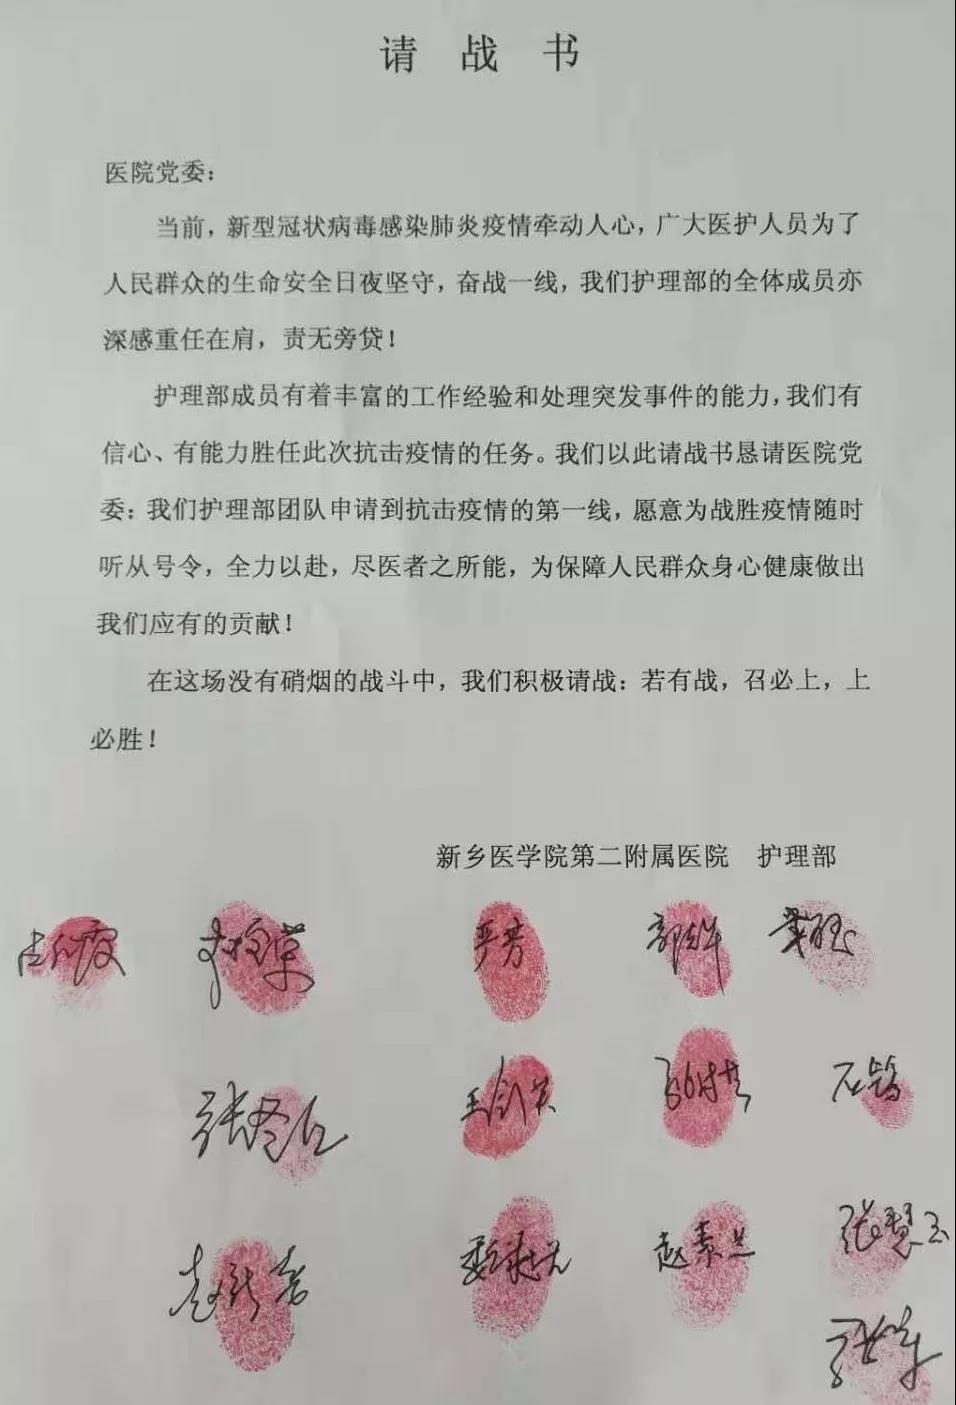 请战书
医院党委：
当前，新型冠状病毒感染肺炎疫情牵动人心，广大医护人员为了
人民群众的生命安全日夜坚守，奋战一线，我们护理部的全体成员亦
深感重任在肩，责无旁贷！
护理部成员有着丰富的工作经验和处理突发事件的能力，我们有
信心、有能力胜任此次抗击疫情的任务。我们以此请战书恳请医院党
委：我们护理部团队申请到抗击疫情的第一线，愿意为战胜疫情随时
听从号令，全力以赴，尽医者之所能，为保障人民群众身心健康做出
我们应有的贡献！
在这场没有硝烟的战斗中，我们积极请战：若有战，召必上，上
必胜！
新乡医学院第二附属医院 护理部
严芳
赵素兰
张慧玉